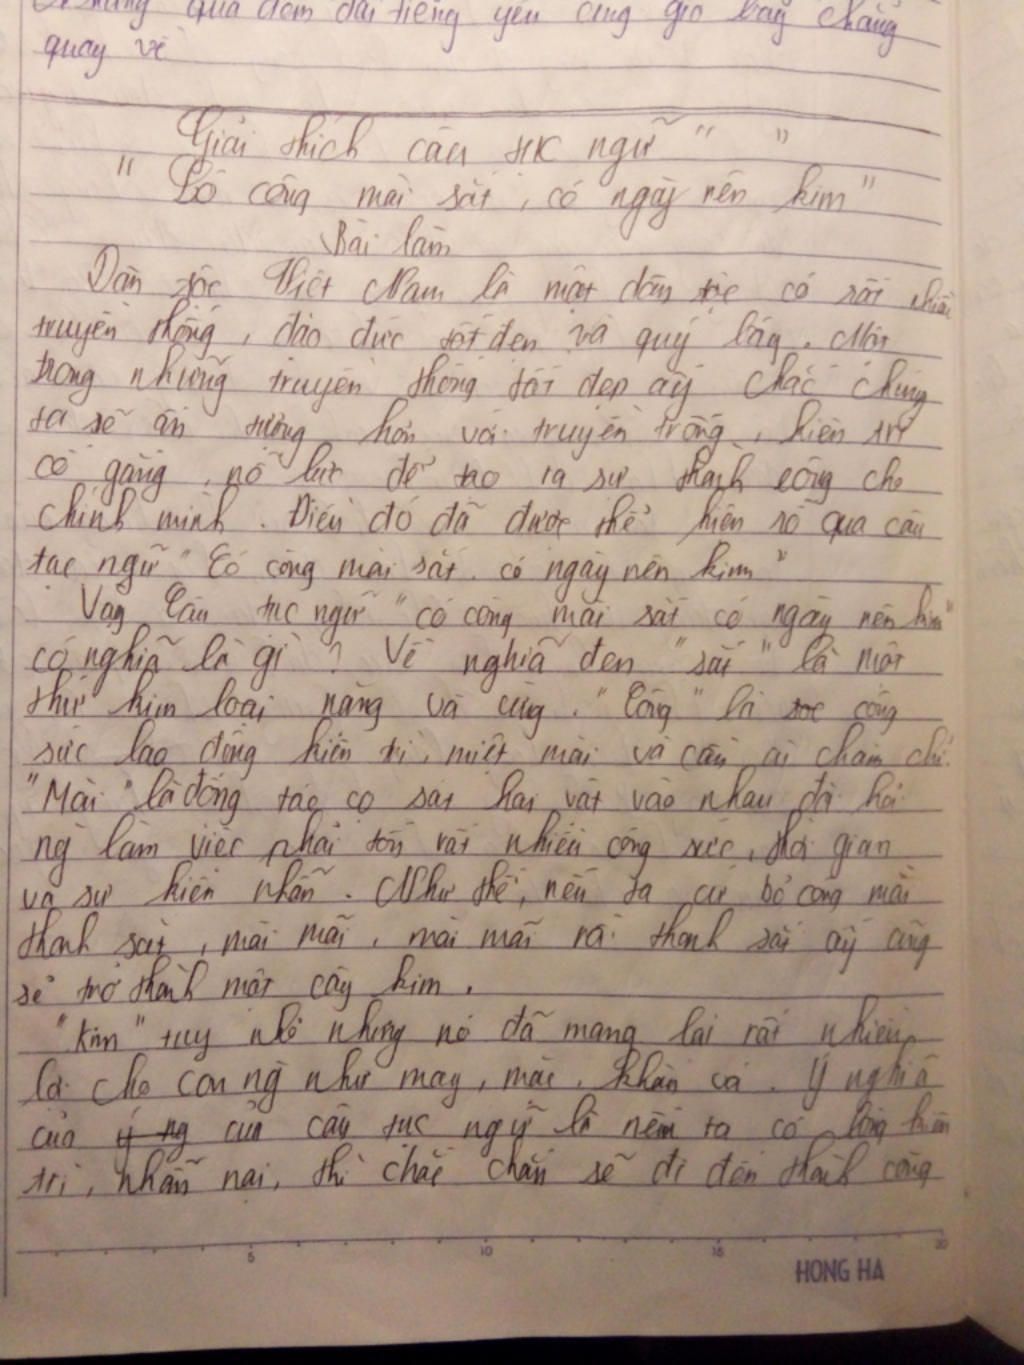 nắng qua đêm dài tiếng yêu cũng gió bay chẳng
quay về
Giải thích câu tục ngữ " "
" Có công mài sắt, có ngày nên kim "
Bài làm
Dân tộc Việt Nam là một dân tộc có rất nhiều
truyền thống, đạo đức tốt đẹp và quý báu. Một
trong những truyền thống tốt đẹp ấy chắc chúng
ta sẽ ấn tượng hơn với truyền trống, kiên trì
cố gắng, nỗ lực để tạo ra sự thành công cho
chính mình. Điều đó đã được thể hiện rõ qua câu
tục ngữ " Có công mài sắt, có ngày nên kim "
Vậy Câu tục ngữ " có công mài sắt có ngày nên kim "
có nghĩa là gì ? Về nghĩa đen " sắt " là một
thứ kim loại nặng và cứng. " Công " là công
sức lao động kiên trì, miệt mài và cần cù chăm chỉ.
" Mài " là động tác cọ sát hai vật vào nhau đòi hỏi
ng làm việc phải tốn rất nhiều công sức, thời gian
và sự kiên nhẫn. Như thế, nếu ta cứ bỏ công mài
thanh sắt, mài mãi, mài mãi rồi thanh sắt ấy cũng
sẽ trở thành một cây kim.
" Kim " tuy nhỏ nhưng nó đã mang lại rất nhiều
lợi cho con ng như may, mặc, khăn vá. Ý nghĩa
của ý ng của câu tục ngữ là nếu ta có lòng kiên
trì, nhẫn nại, thì chắc chắn sẽ đi đến thành công
5 10 15 20
HONG HA